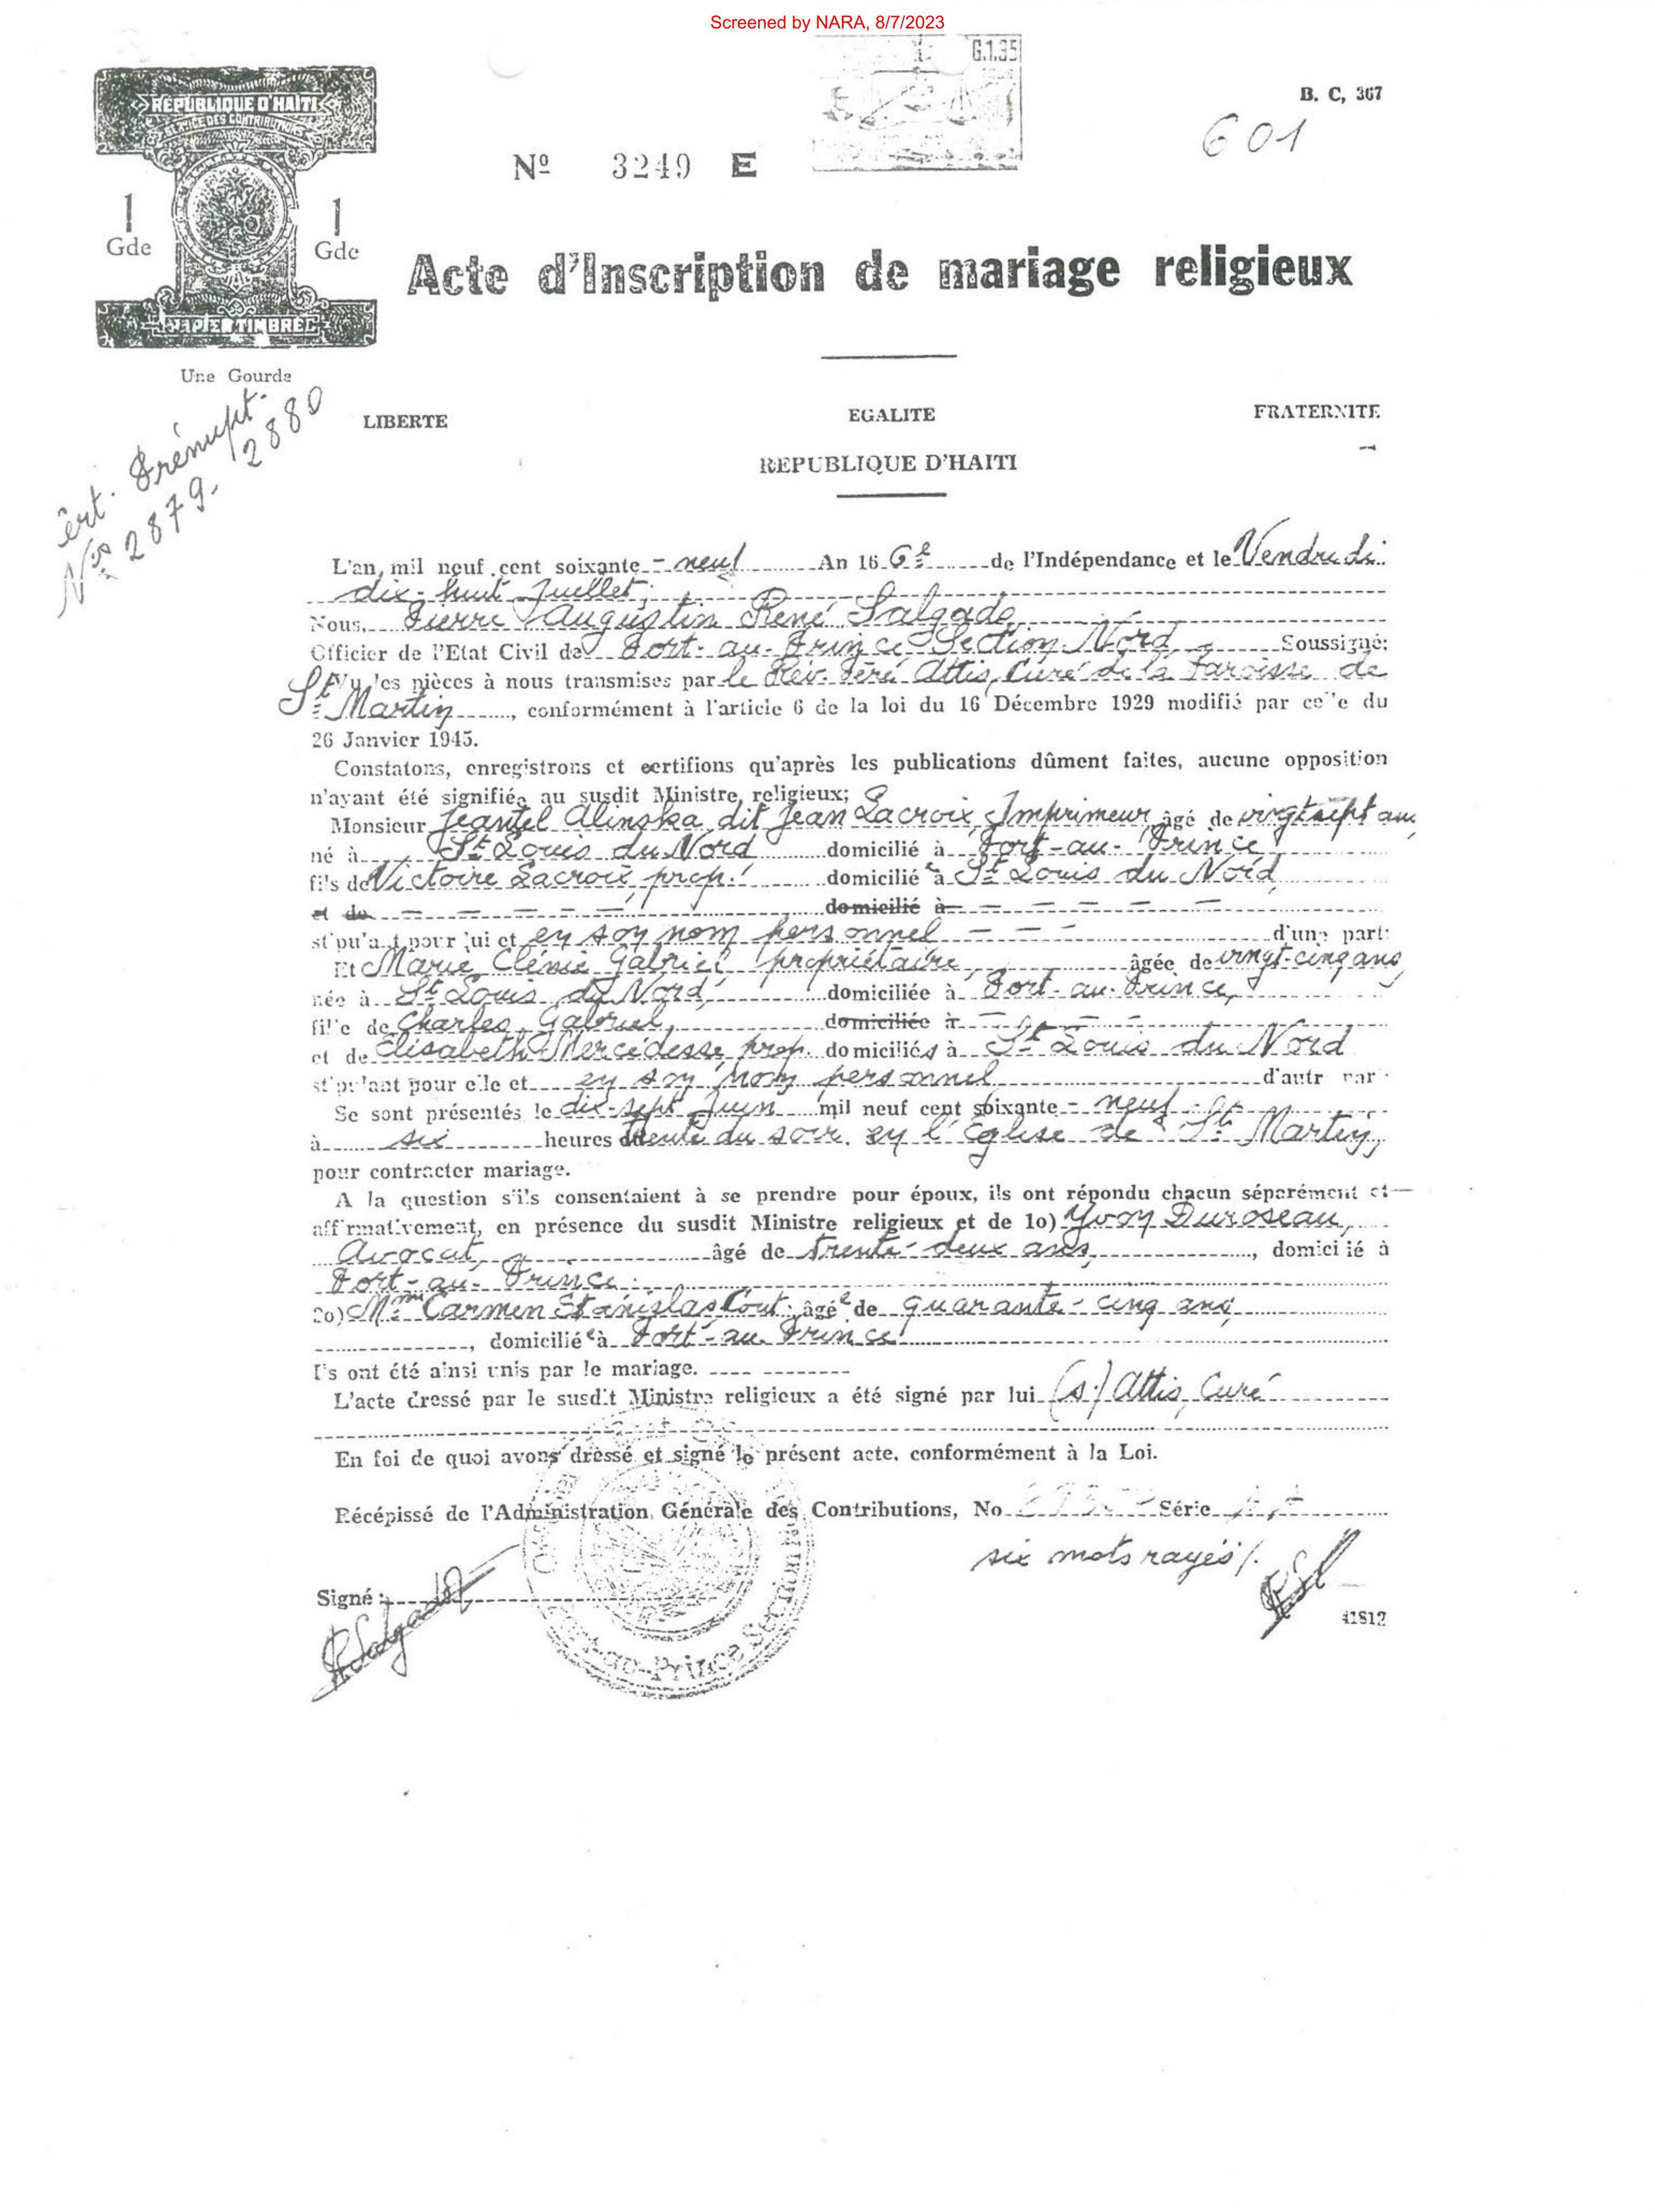 Screened by NARA, 8/7/2023
G.1.35
B. C, 367
601
REPUBLIQUE D'HAITI
SERVICE DES CONTRIBUTIONS
Nº 3249 E
1 Gde 1 Gde
Acte d'Inscription de mariage religieux
PAPIER TIMBRE
Une Gourde
Prénupt.
Nos 2879- 2880
LIBERTE EGALITE FRATERNITE
REPUBLIQUE D'HAITI
L'an, mil neuf cent soixante - neuf An 166e de l'Indépendance et le Vendredi
dix-huit Juillet,
Nous, Pierre Augustin René Salgado,
Officier de l'Etat Civil de Port-au-Prince Section Nord Soussigné;
Vu les pièces à nous transmises par le Rév. Père Attis, Curé de la Paroisse de
St Martin, conformément à l'article 6 de la loi du 16 Décembre 1929 modifié par celle du
26 Janvier 1945.
Constatons, enregistrons et certifions qu'après les publications dûment faites, aucune opposition
n'ayant été signifiée au susdit Ministre religieux;
Monsieur Alinska dit Jean Lacroix, Imprimeur, âgé de vingt sept ans,
né à St Louis du Nord domicilié à Port-au-Prince
fils de Victoire Lacroix, prop. domiciliée à St Louis du Nord
et de domicilié à
stipulant pour lui et en son nom personnel d'une part:
Et Marie Clénie Gabriel propriétaire, âgée de vingt-cinq ans,
née à St Louis du Nord, domiciliée à Port-au-Prince,
fille de Charles Gabriel, domiciliée à
et de Elisabeth Mercidesse, prop. domiciliés à St Louis du Nord
stipulant pour elle et en son nom personnel d'autr par
Se sont présentés le dix-sept Juin mil neuf cent soixante - neuf
à six heures trente du soir en l'Eglise de St Martin,
pour contracter mariage.
A la question s'ils consentaient à se prendre pour époux, ils ont répondu chacun séparément et
affirmativement, en présence du susdit Ministre religieux et de 1o) Yvon Duroseau,
Avocat, âgé de trente-deux ans, domicilié à
Port-au-Prince
2o) Mme Carmen Stanislas Cout: âgée de quarante-cinq ans,
, domiciliée à Port-au-Prince
Ils ont été ainsi unis par le mariage.
L'acte dressé par le susdit Ministre religieux a été signé par lui (s) Attis, Curé
En foi de quoi avons dressé et signé le présent acte, conformément à la Loi.
Récépissé de l'Administration Générale des Contributions, No Série
six mots rayés/.
Signé:
RSalgado
41812
Port-au-Prince Section